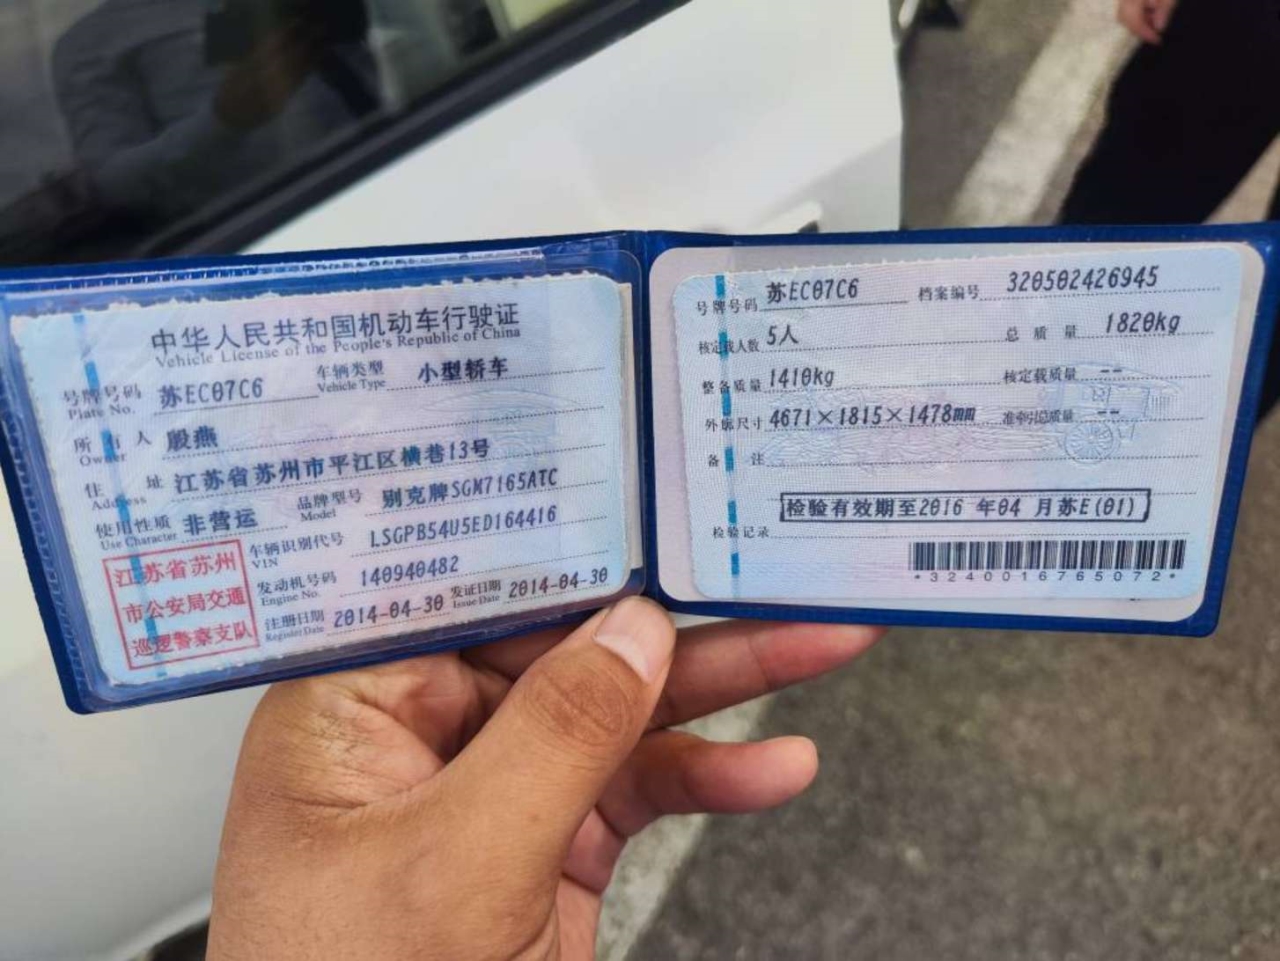 中华人民共和国机动车行驶证
Vehicle License of the People's Republic of China
号牌号码 苏EC07C6 车辆类型 小型轿车
Plate No. Vehicle Type
所有人 殷燕
Owner
住址 江苏省苏州市平江区横巷13号
Address
使用性质 非营运 品牌型号 别克牌SGM7165ATC
Use Character Model
江苏省苏州
市公安局交通
巡逻警察支队
车辆识别代号 LSGPB54U5ED164416
VIN
发动机号码 140940482
Engine No.
注册日期 2014-04-30 发证日期 2014-04-30
Register Date Issue Date
号牌号码 苏EC07C6 档案编号 320502426945
核定载人数 5人 总质量 1820kg
整备质量 1410kg 核定载质量 --
外廓尺寸 4671×1815×1478mm 准牵引总质量 --
备注
检验有效期至2016 年04 月苏E(01)
检验记录
*3240016765072*